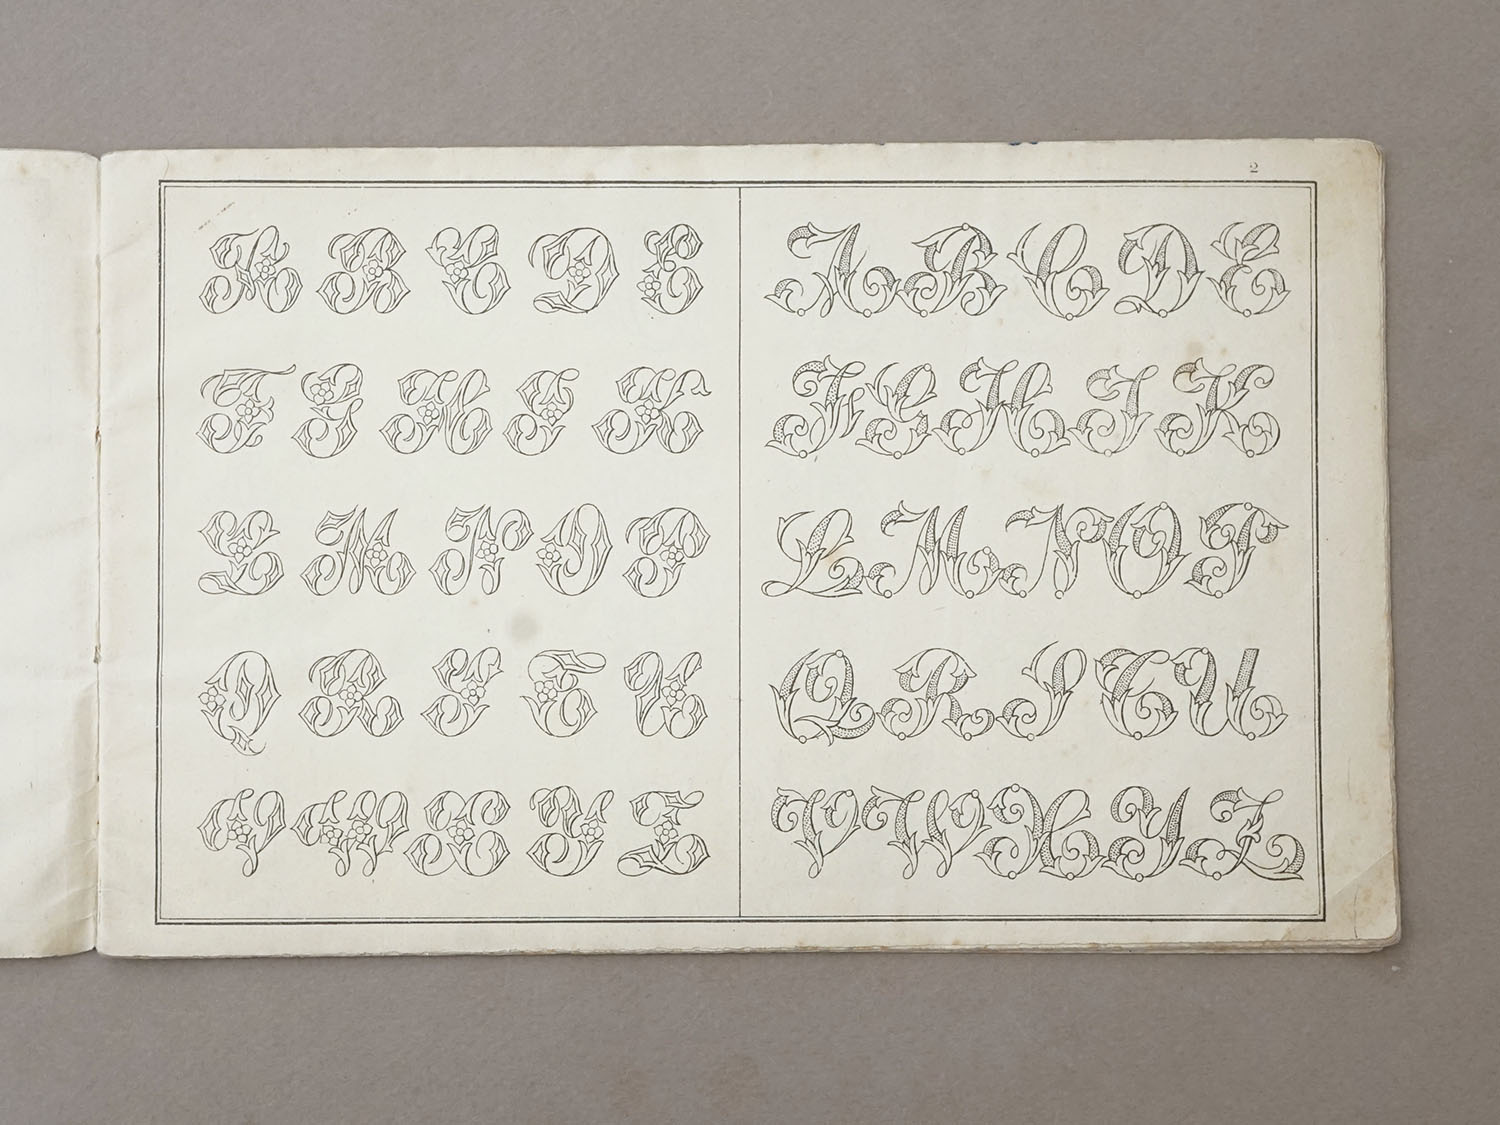 2
A B C D E
F G H I K
L M N O P
Q R S T U
V W X Y Z
A B C D E
F G H I K
L M N O P
Q R S T U
V W X Y Z